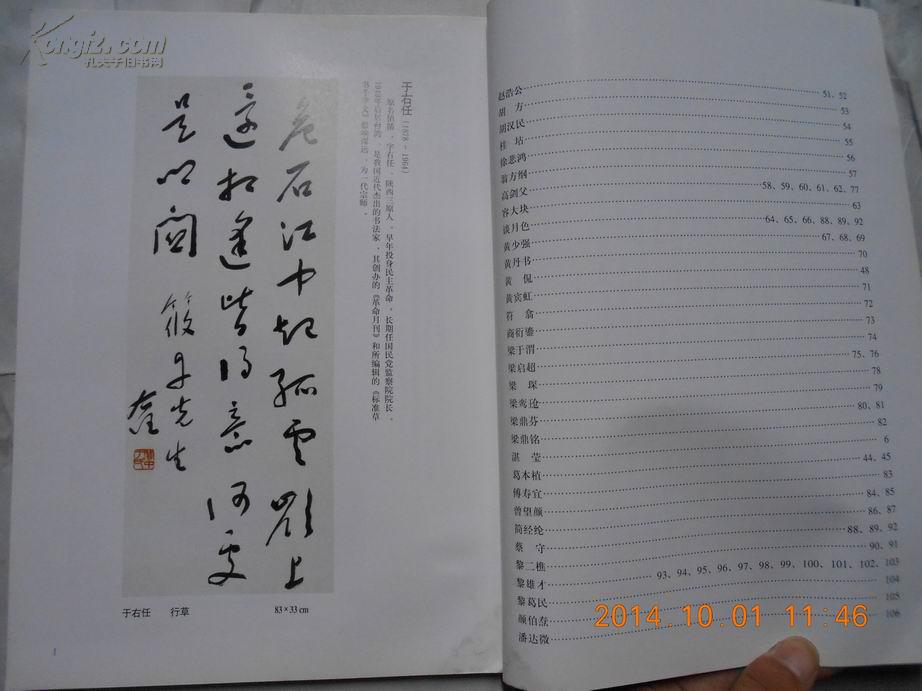 Kongfz.com
孔夫子旧书网
于右任（1878～1964）
原名伯循，字右任，陕西三原人。早年投身民主革命，长期任国民党监察院院长，
1949年后居台湾，是我国近代杰出的书法家，其创办的《革命月刊》和所编辑的《标准草
书千字文》影响深远，为一代宗师。
危石江中起孤雲嶺上
還相逢皆得意何處
是鄉關 先生
右任
于右任 行草 83×33 cm
1
赵浩公 51、52
胡 方 53
胡汉民 54
桂 坫 55
徐悲鸿 56
翁方纲 57
高剑父 58、59、60、61、62、77
容大块 63
谈月色 64、65、66、88、89、92
黄少强 67、68、69
黄丹书 70
黄 侃 48
黄宾虹 71
符 翕 72
商衍鎏 73
梁于渭 74
梁启超 75、76
梁 琛 78
梁鸾玱 79
梁鼎芬 80、81
梁鼎铭 82
湛 莹 6
葛本植 44、45
傅寿宜 83
曾望颜 84、85
简经纶 86、87
蔡 守 88、89、92
黎二樵 90、91
黎雄才 93、94、95、96、97、98、99、100、101、102、103
黎葛民 104
颜伯焘 105
潘达微 106
2014.10.01 11:46